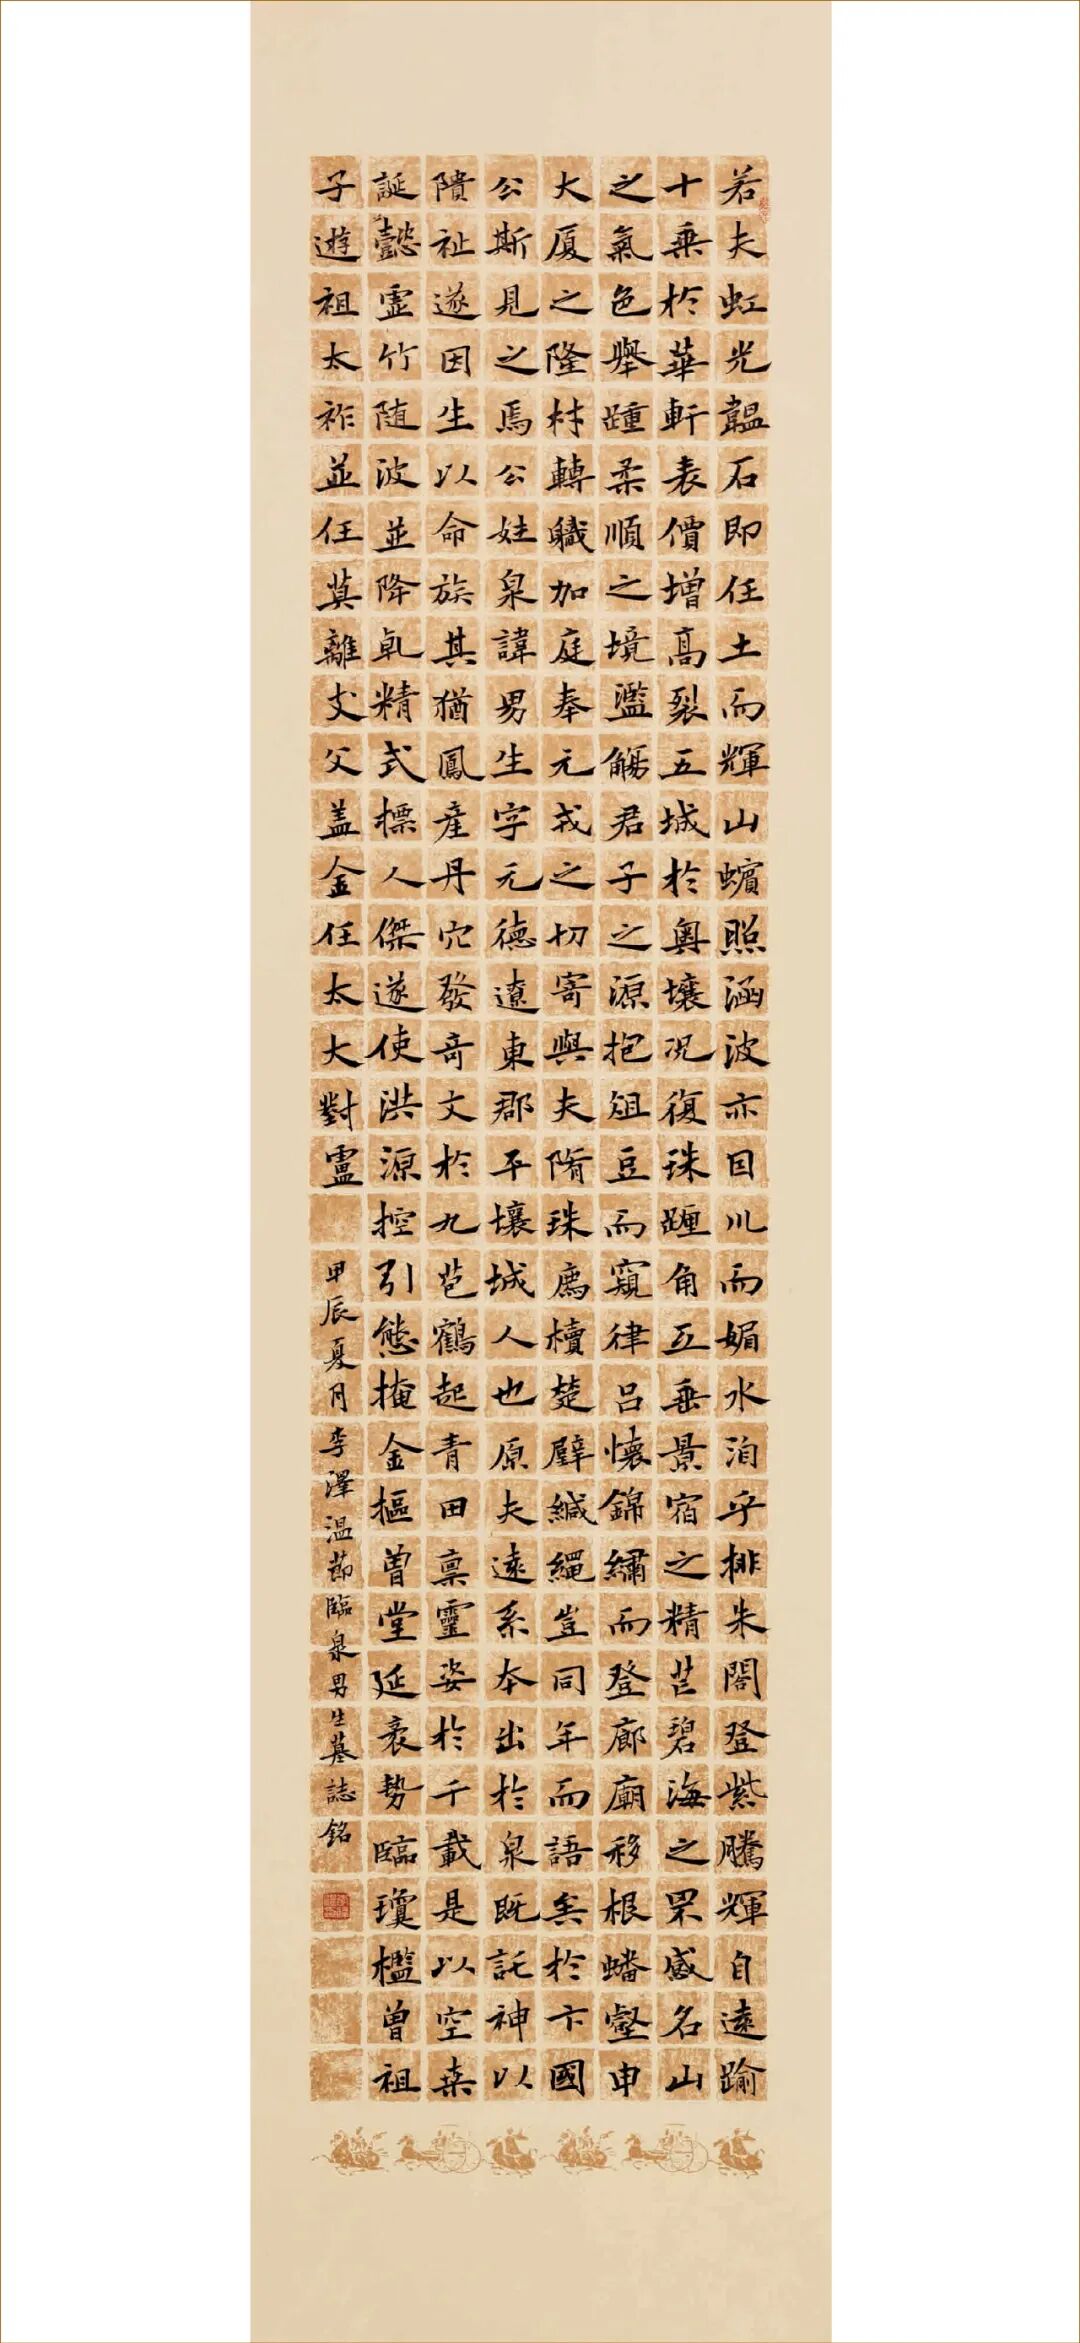 若夫虹光韞石即任土而輝山蠙照涵波亦因川而媚水洎乎排朱閤登紫騰輝自遠踰
十乗於華軒表價增高裂五城於奧壤况復珠躔角互垂景宿之精芒碧海之罘感名山
之氣色舉踵柔順之境濫觴君子之源抱俎豆而窺律呂懷錦繡而登廊廟移根蟠壑申
大厦之隆材轉職加庭奉元戎之切寄與夫隋珠廌櫝楚璧緘繩豈同年而語矣於卞國
公斯見之焉公姓泉諱男生字元德遼東郡平壤城人也原夫遠系本出於泉既託神以
隤祉遂因生以命族其猶鳳產丹穴發奇文於九苞鶴起青田稟靈姿於千載是以空桑
誕懿虛竹随波並降乹精式標人傑遂使洪源控引態掩金樞曽堂延袤勢臨瓊檻曽祖
子遊祖太祚並任莫離支父盖金任太大對盧
甲辰夏月李澤温節臨泉男生墓誌銘